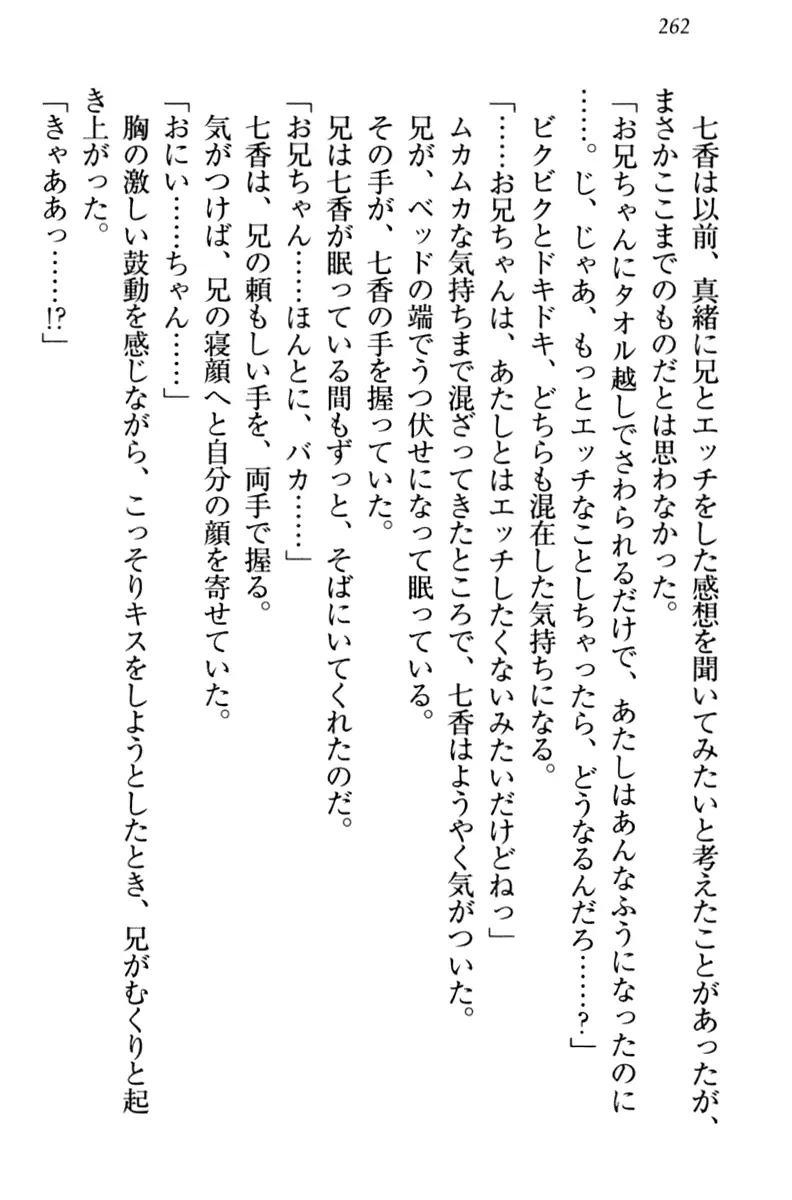 262
七香は以前、真緒に兄とエッチをした感想を聞いてみたいと考えたことがあったが、
まさかここまでのものだとは思わなかった。
「お兄ちゃんにタオル越しでさわられるだけで、あたしはあんなふうになったのに
……。じ、じゃあ、もっとエッチなことしちゃったら、どうなるんだろ……?」
ビクビクとドキドキ、どちらも混在した気持ちになる。
「……お兄ちゃんは、あたしとはエッチしたくないみたいだけどねっ」
ムカムカな気持ちまで混ざってきたところで、七香はようやく気がついた。
兄が、ベッドの端でうつ伏せになって眠っている。
その手が、七香の手を握っていた。
兄は七香が眠っている間もずっと、そばにいてくれたのだ。
「お兄ちゃん……ほんとに、バカ……」
七香は、兄の頼もしい手を、両手で握る。
気がつけば、兄の寝顔へと自分の顔を寄せていた。
「おにい……ちゃん……」
胸の激しい鼓動を感じながら、こっそりキスをしようとしたとき、兄がむくりと起
き上がった。
「きゃああっ……!?」